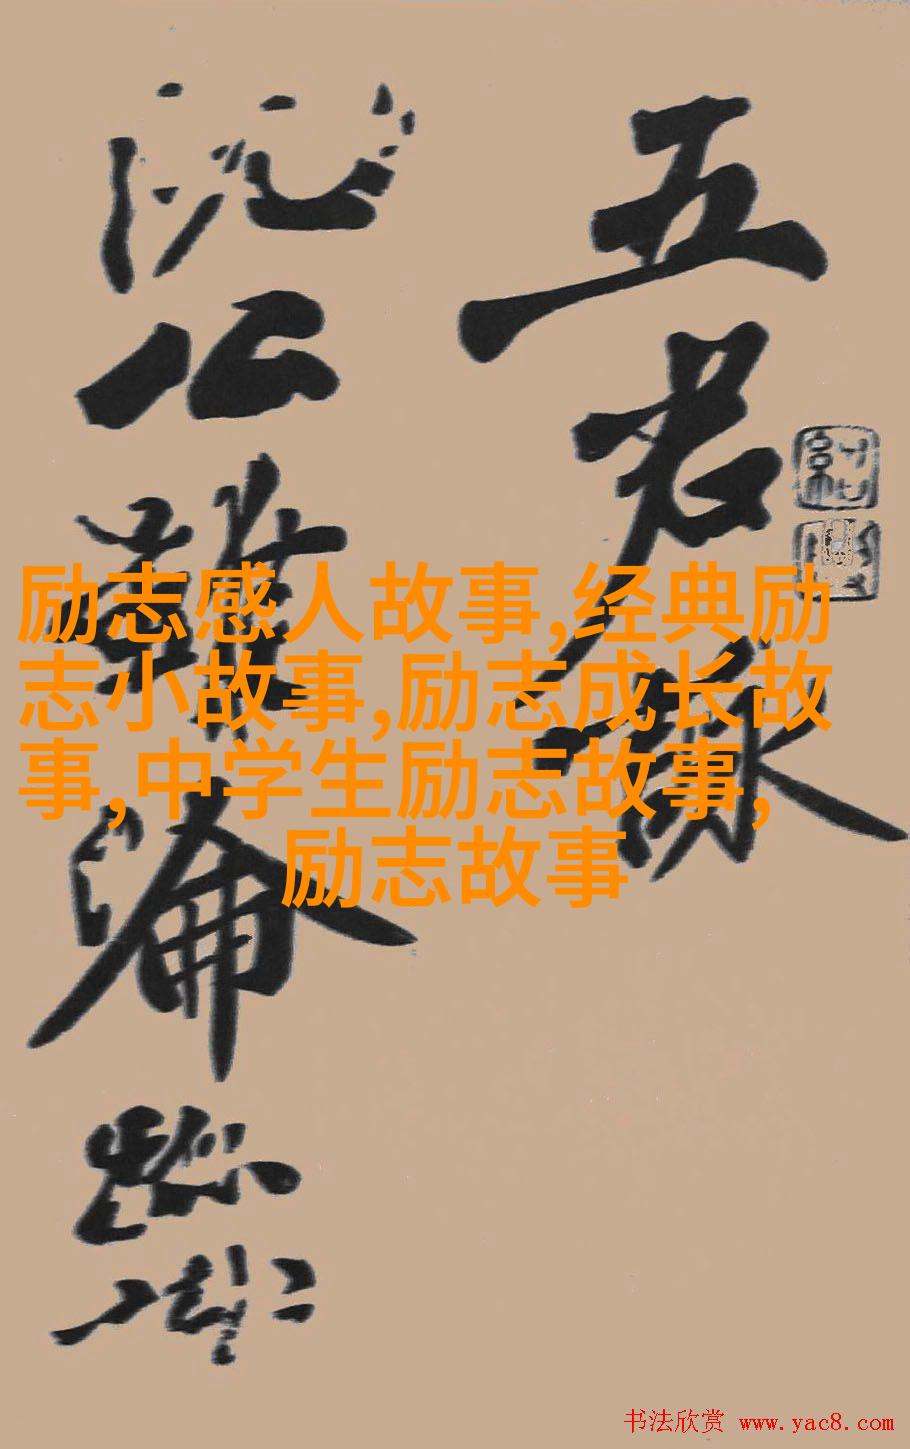 五君詠
阮公雖淪跡
励志感人故事,经典励
志小故事,励志成长故
事,中学生励志故事,
励志故事
书法欣赏 www.yac8.com